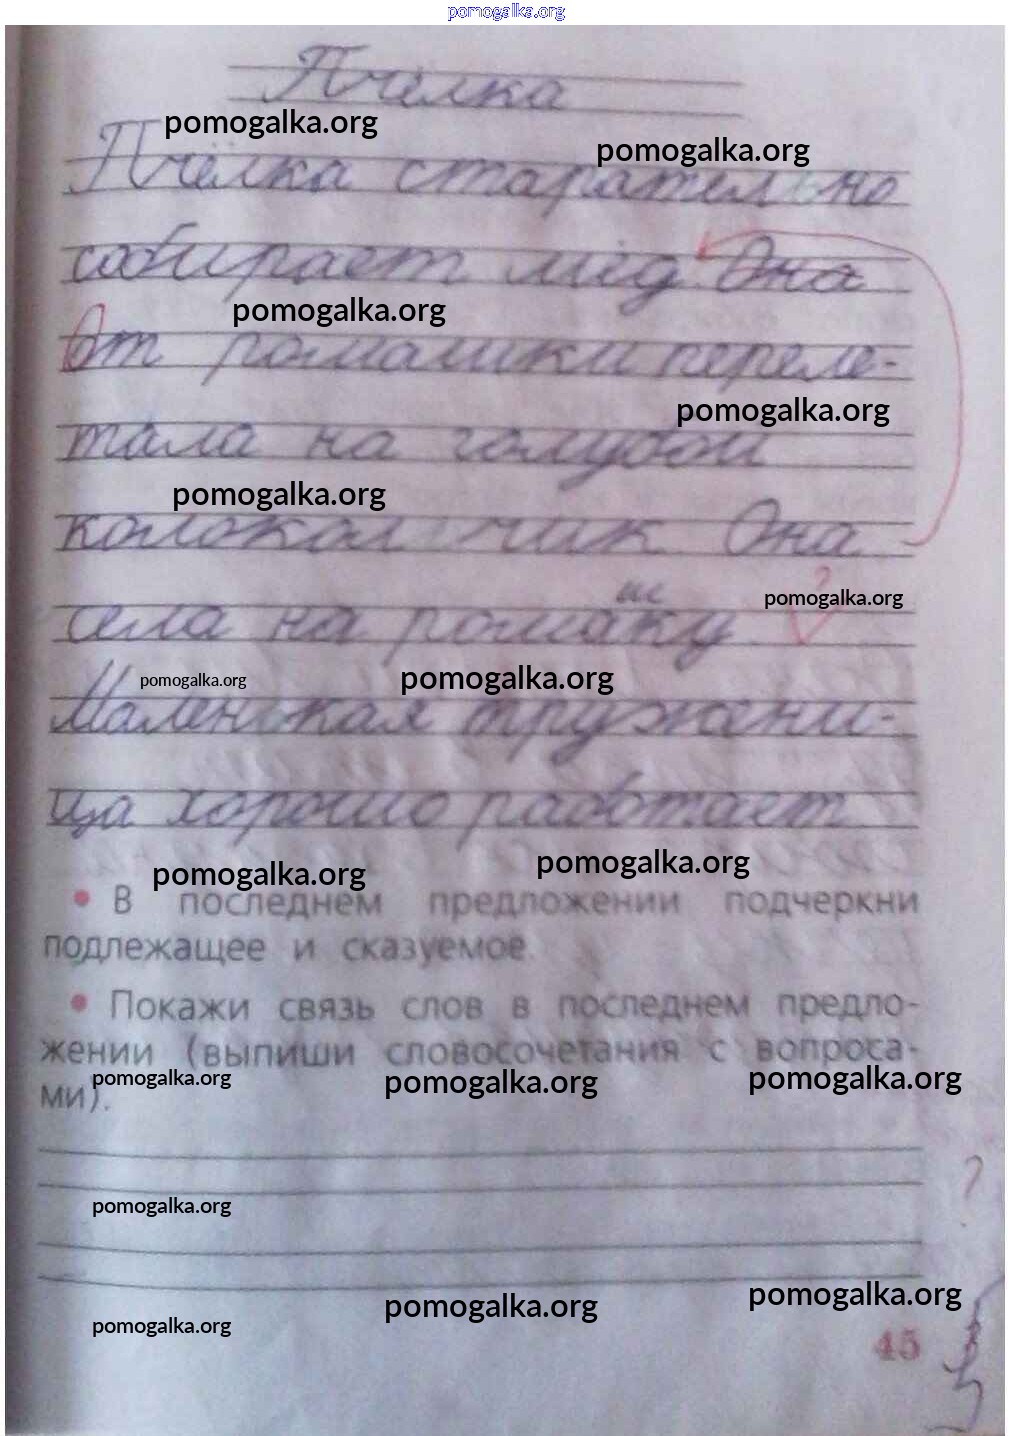 pomogalka.org
Пчёлка
pomogalka.org
pomogalka.org
Пчёлка старательно
собирает мёд. Она
pomogalka.org
От ромашки переле-
pomogalka.org
тала на голубой
pomogalka.org
колокольчик Она
ш
pomogalka.org
села на ромаку
pomogalka.org
pomogalka.org
Маленькая тружени-
ца хорошо работает
pomogalka.org
pomogalka.org
• В последнем предложении подчеркни
подлежащее и сказуемое.
• Покажи связь слов в последнем предло-
жении (выпиши словосочетания с вопроса-
ми).
pomogalka.org
pomogalka.org
pomogalka.org
?
pomogalka.org
pomogalka.org
pomogalka.org
pomogalka.org
45